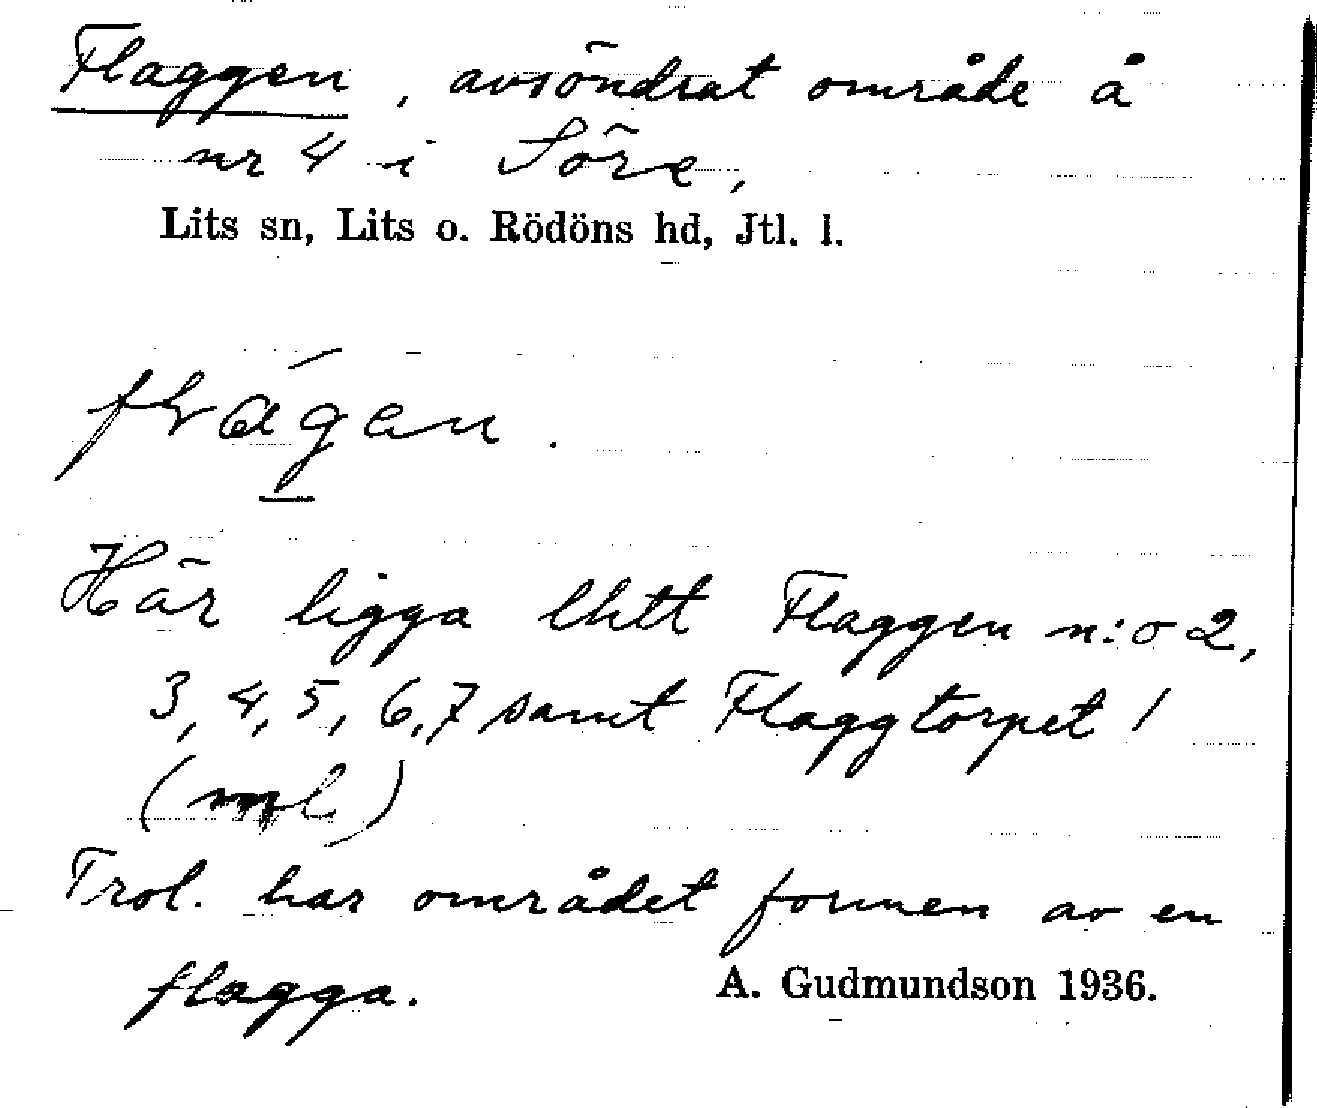 Flaggen, avsöndrat område å
nr 4 i Söre,
Lits sn, Lits o. Rödöns hd, Jtl. l.
Här ligga Flaggen n:o 2,
3, 4, 5, 6, 7 samt Flaggtorpet 1
Trol. har området formen av en
flagga.
A. Gudmundson 1936.